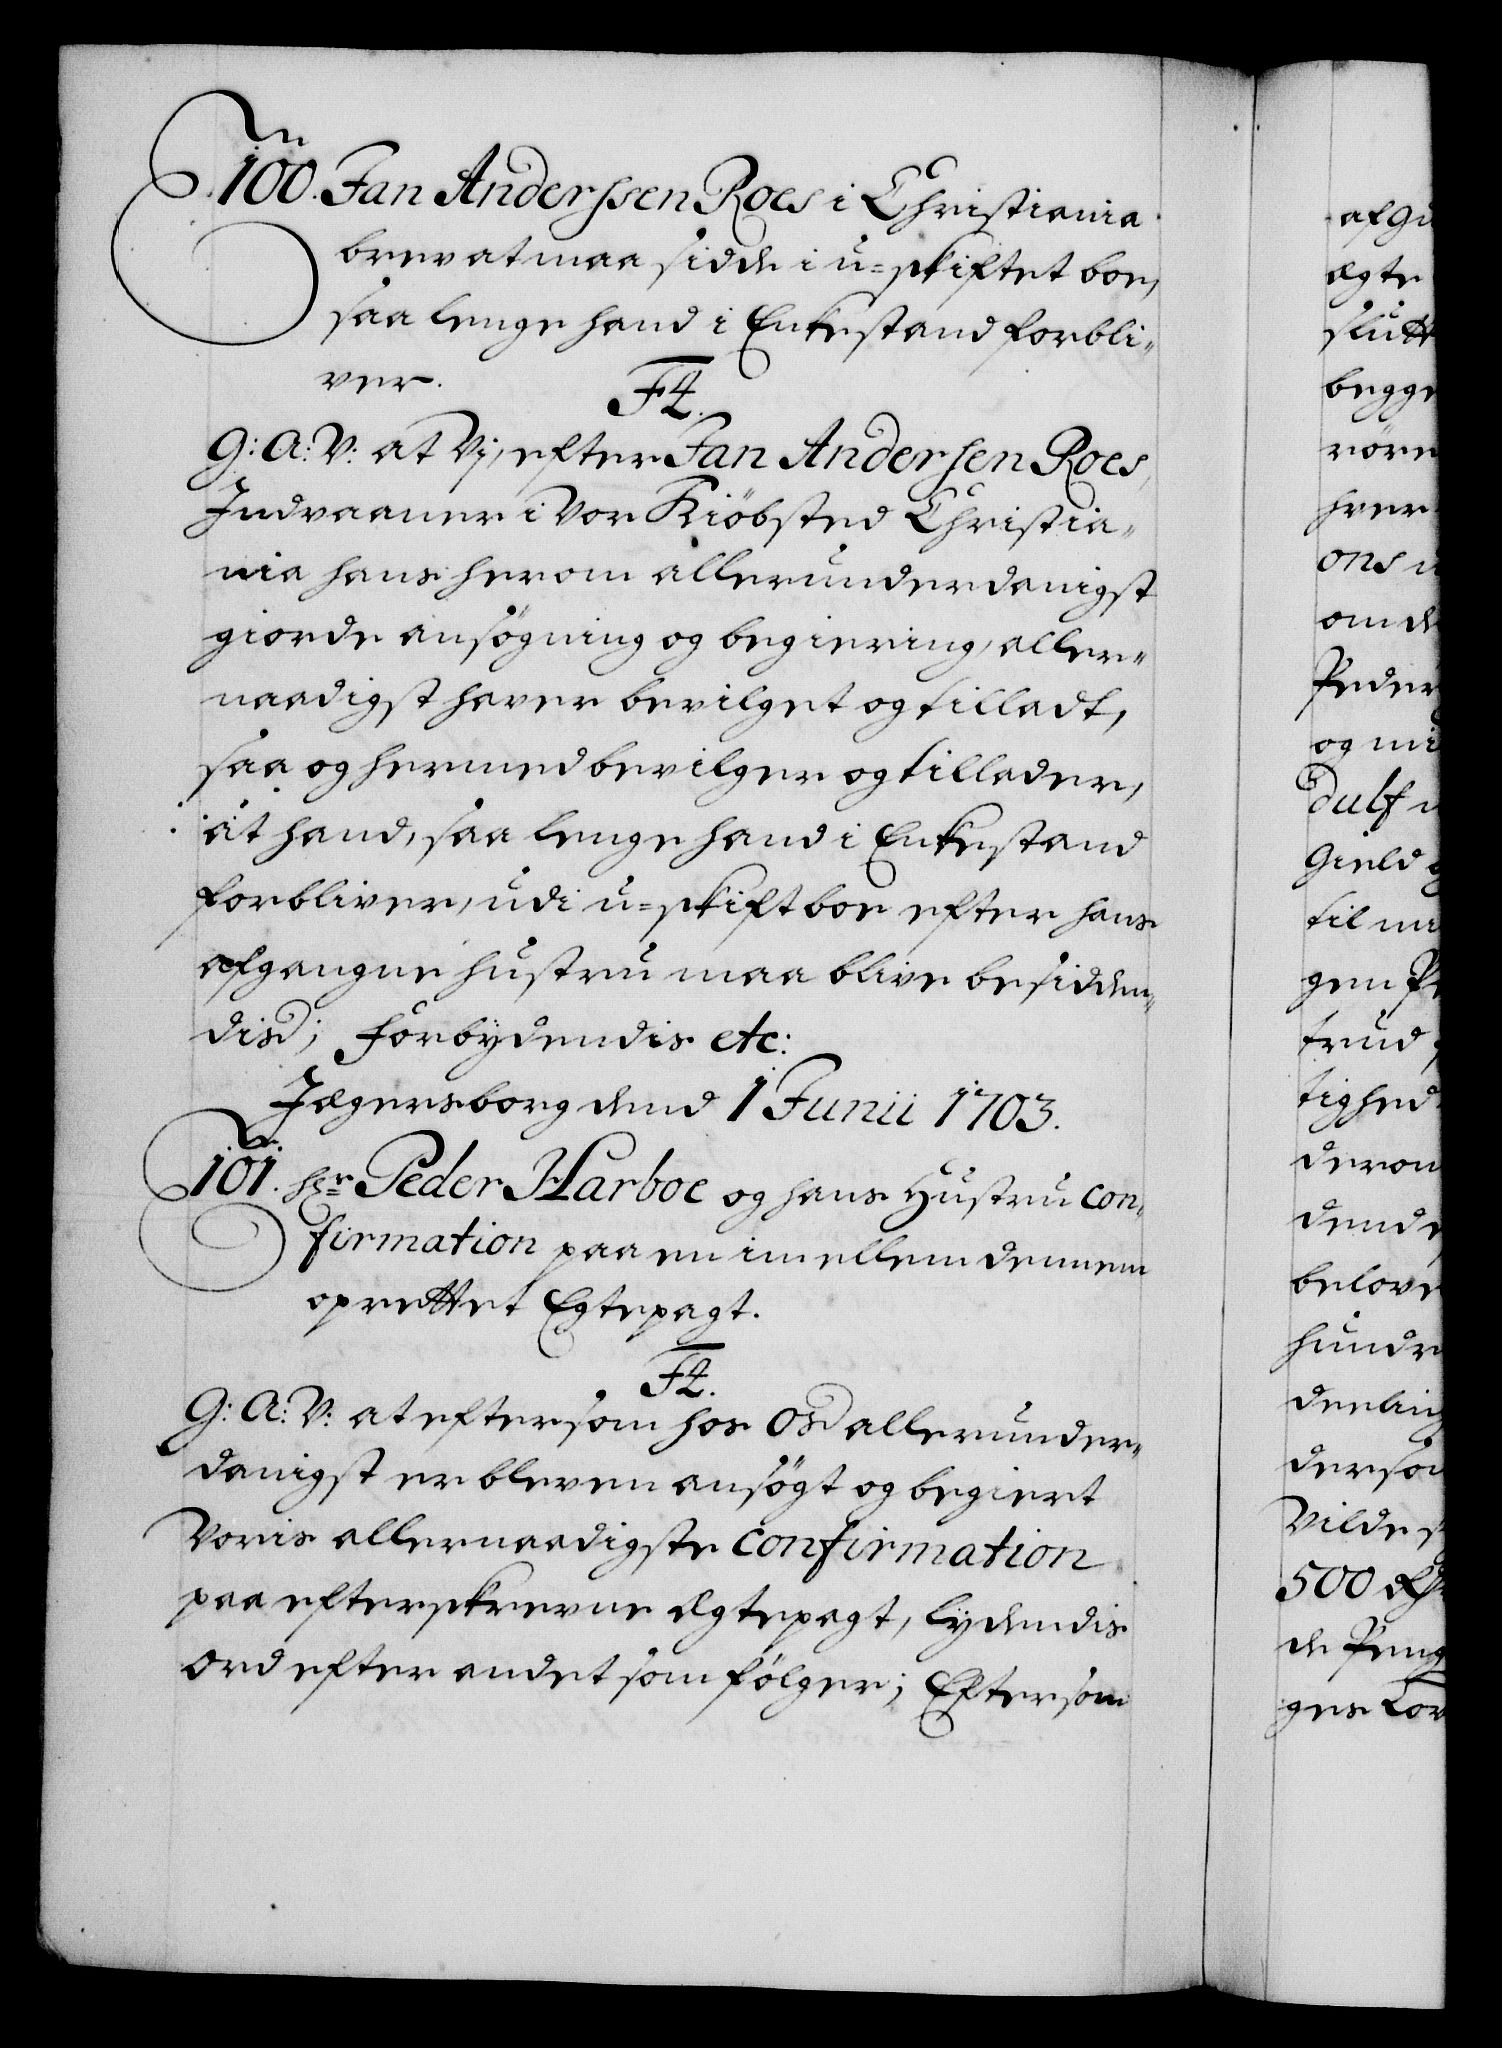 100. Jan Anderssen Roes i Christiania
brev at maa sidde i u=skiftet boe,
saa lenge hand i Enkestand forbli-
ver.
F4.
G: A: V: at Vj, efter Jan Andersen Roes,
Indvaaner i Vor Kiöbsted Christia-
nia hans herom allerunderdanigst
giorde ansögning og begiering, aller-
naadigst haver bevilget og tilladt,
saa og hermed bevilger og tillader,
at hand, saa lenge hand i Enkestand
forbliver, udi u=skift boe efter hans
afgangne hustru maa blive besidden-
dis; Forbydendis etc:
Jægersborg dend 1 Junii 1703.
101. Hr Peder Harboe og hans Hustru con-
firmation paa en imellem dennem
oprettet Egtepagt.
F4.
G: A: V: at eftersom hos Os allerunder-
danigst er bleven ansögt og begiert
Voris allernaadigste confirmation
paa efterskrevne Ægtepagt, lydendis
Ord efter andet som fölger; Eftersom
ægte
begge
Peder
og mi
Gield
trud
tighed
belove
hundr
Vilde
500
de Peng
ges Lov